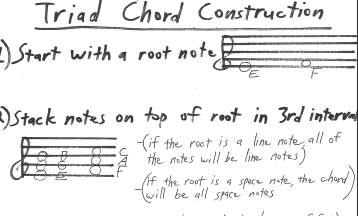 Triad Chord Construction
1) Start with a root note
E F
2) Stack notes on top of root in 3rd interval
-(if the root is a line note, all of
the notes will be line notes)
C
A
F
E
-(If the root is a space note, the chord)
will be all space notes